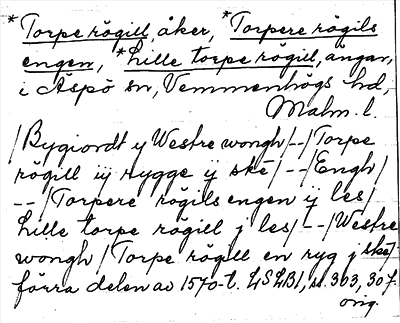 *Torpe rögill, åker, *Torpere rögils
engen, *Lille torpe rögill, ängar,
i Äspö sn, Vemmenhögs hd,
Malm. l.
/Bygiordt y Westre wongh/--/Torpe
rögill iij rygge ÿ skē/--/Engh/
--/Torpere rögils engen ij les/
Lille torpe rögill j les/--/Westre
wongh/Torpe rögill en ryg j skē/
förra delen av 1570-t. LSLB1, ss. 303, 307.
orig.